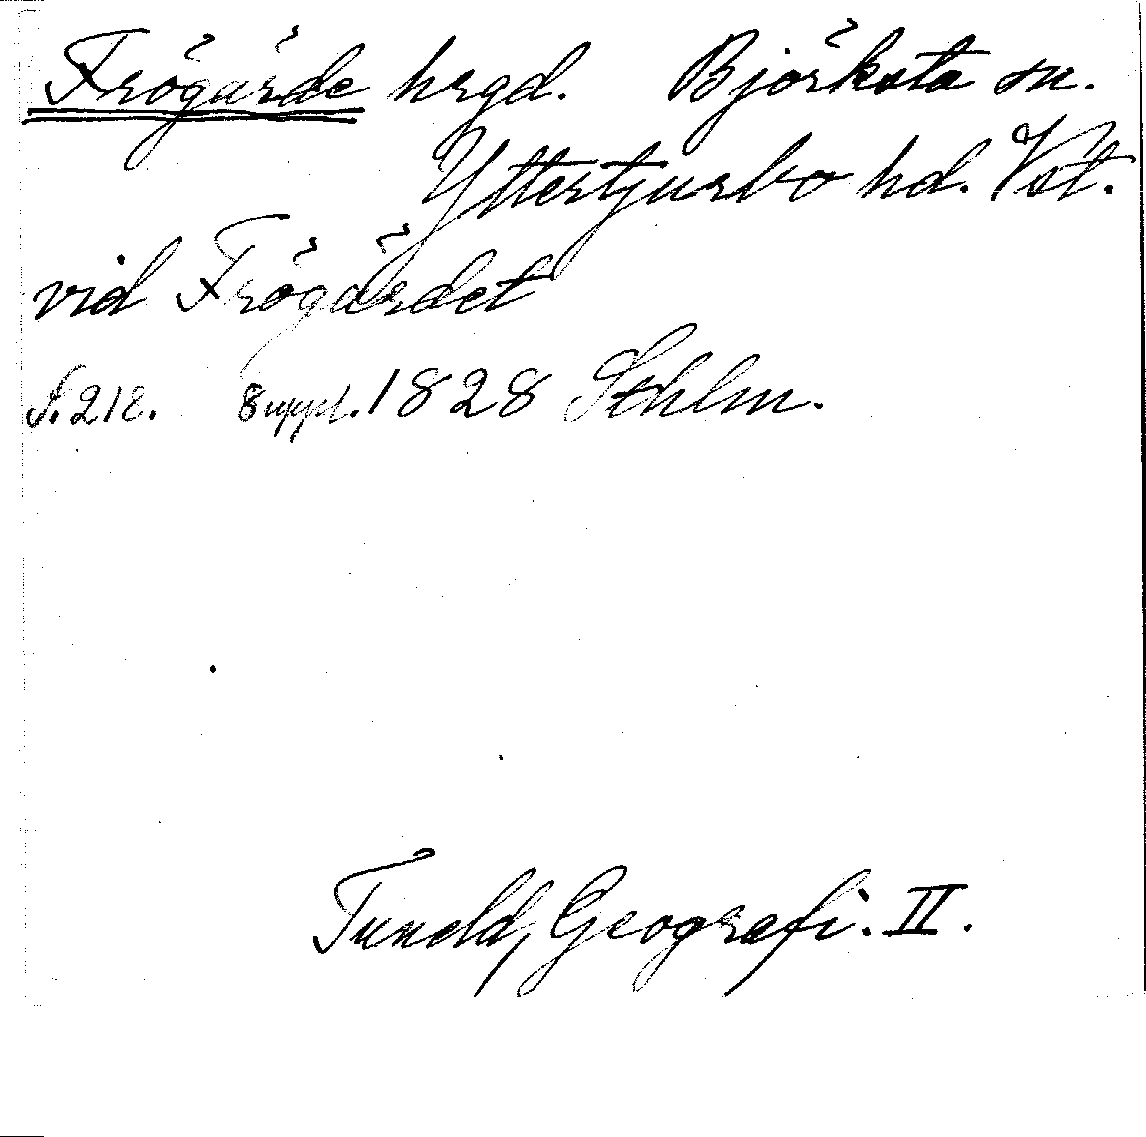 Frögärde hrgd. Björksta sn.
Yttertjurbo hd. Vst.
vid Frögärdet
S. 212. 8 uppl. 1828 Sthlm.
Tuneld, Geografi. II.